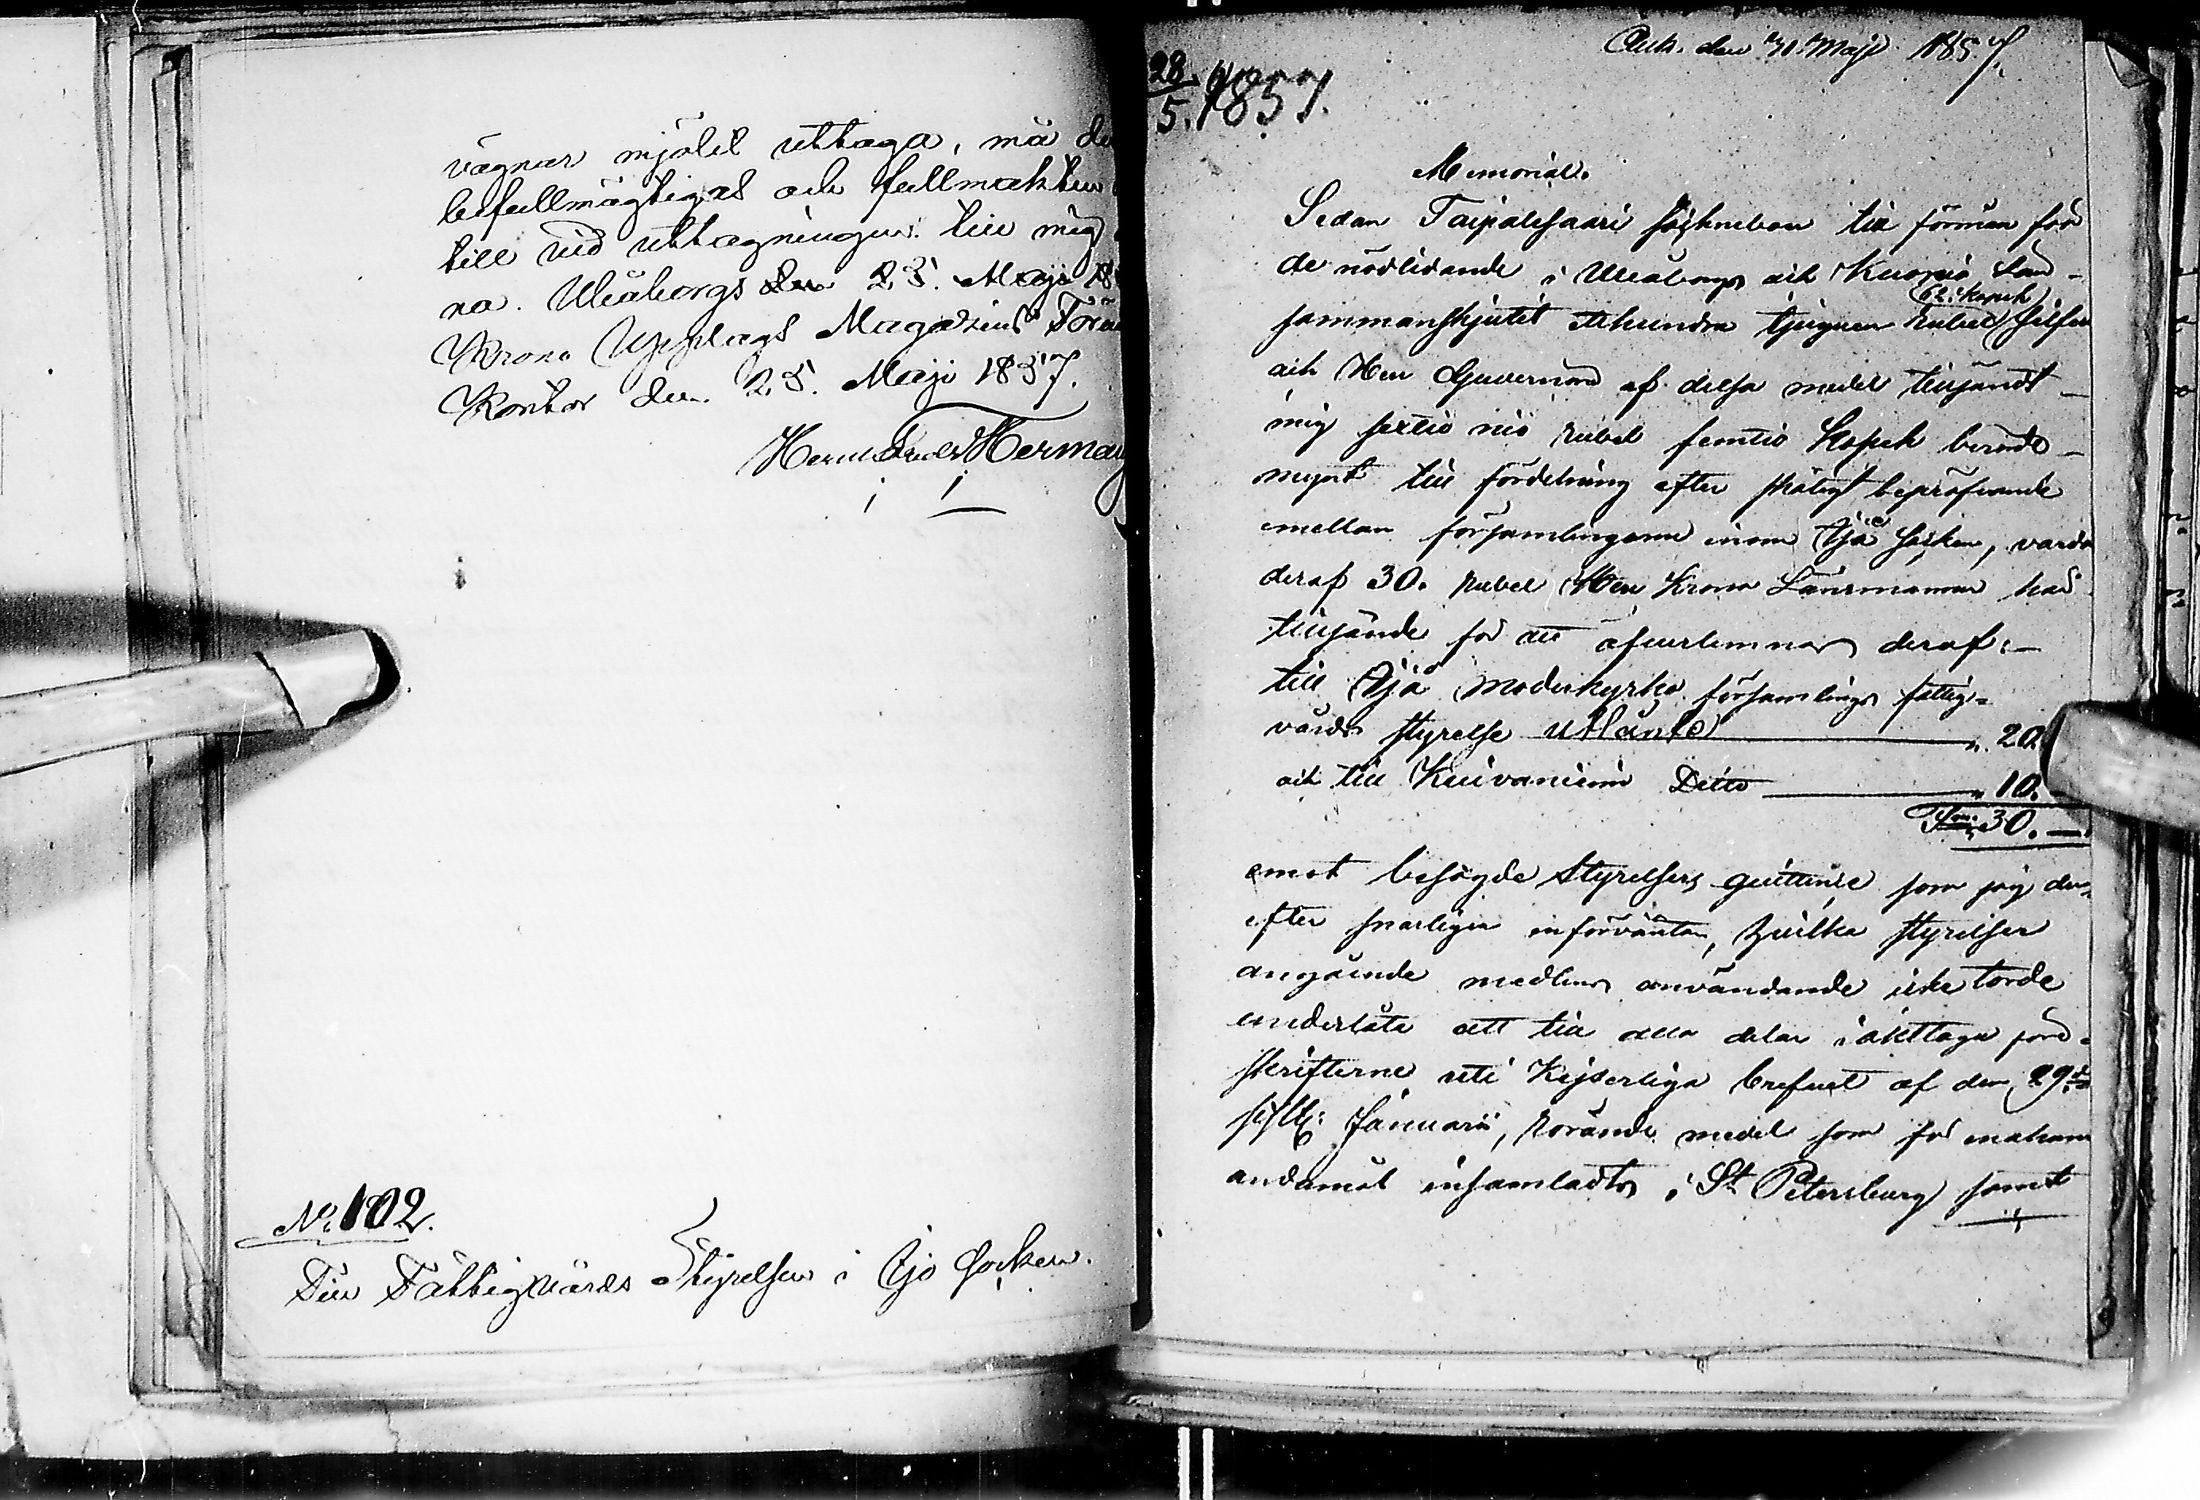 vägnar mjölet uttaga, må de
befullmägtigas och fullmakten
till vid uttagningen till mig
na. Uleåborgs den 25. Maji 18
Krono Upplags Magazins Förva
Kontor den 25. Maji 1857.
Herman
No 102.
Till Fattigvårds Styrelsen i Ijo Socken.
Ank. den 31 Maji 1857.
28/5. 1857.
Memorial.
Sedan Taipalesaari Sockneboer till förmån för
de nödlidande i Uleåborgs och Kuopio Län
62. kopek
sammanskjutit ethundra tjugu Rubel Silfver
och Herr Guvernören af dessa medel tillsändt
mig sextio nio Rubel femtio Kopek berednde
mynt till fördelning efter skäligt bepröfvande
emellan församlingarne inom Ijo Socken, varda
deraf 30. Rubel Herr Krono Länsmannen här
tillsände för att öfverlemnas deraf:
till Ijo moderkyrko församlings fattig-
vårds styrelse " 20
och till Kuivaniemi Ditto " 10.
Sm. 30. —
emot besagde Styrelsers quittence som jag der-
efter snarligen införväntar, hvilka styrelser
angående medlens användande icke torde
underlåta att till alla delar iakttaga före-
skrifterne uti Kejserliga brefvet af den 29de
sistl. Januarii, rörande medel som för enahanda
ändamål insamlats i St Petersburg samt